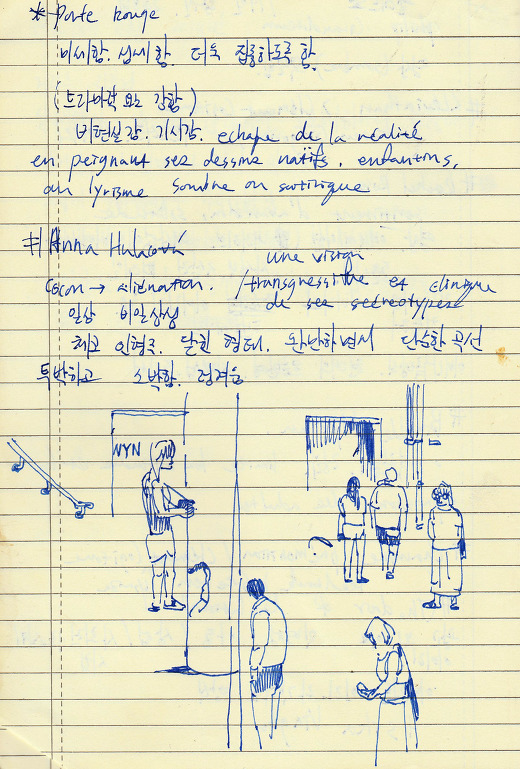 * Porte rouge
미세함. 섬세함. 더욱 집중하도록 함.
(드라마적 요소 강함)
비현실감. 기시감. echape de la réalité
en peignant ses dessins naïfs, enfantins,
un lyrisme sombre ou satirique
# Anna Hulacová
une vision
cocon → aliénation. /transgressive et clinique
de ses stéréotypes
일상 비일상성
닫힌 형태. 완만하면서 단순한 곡선
투박하고 소박함. 정겨움
NYN